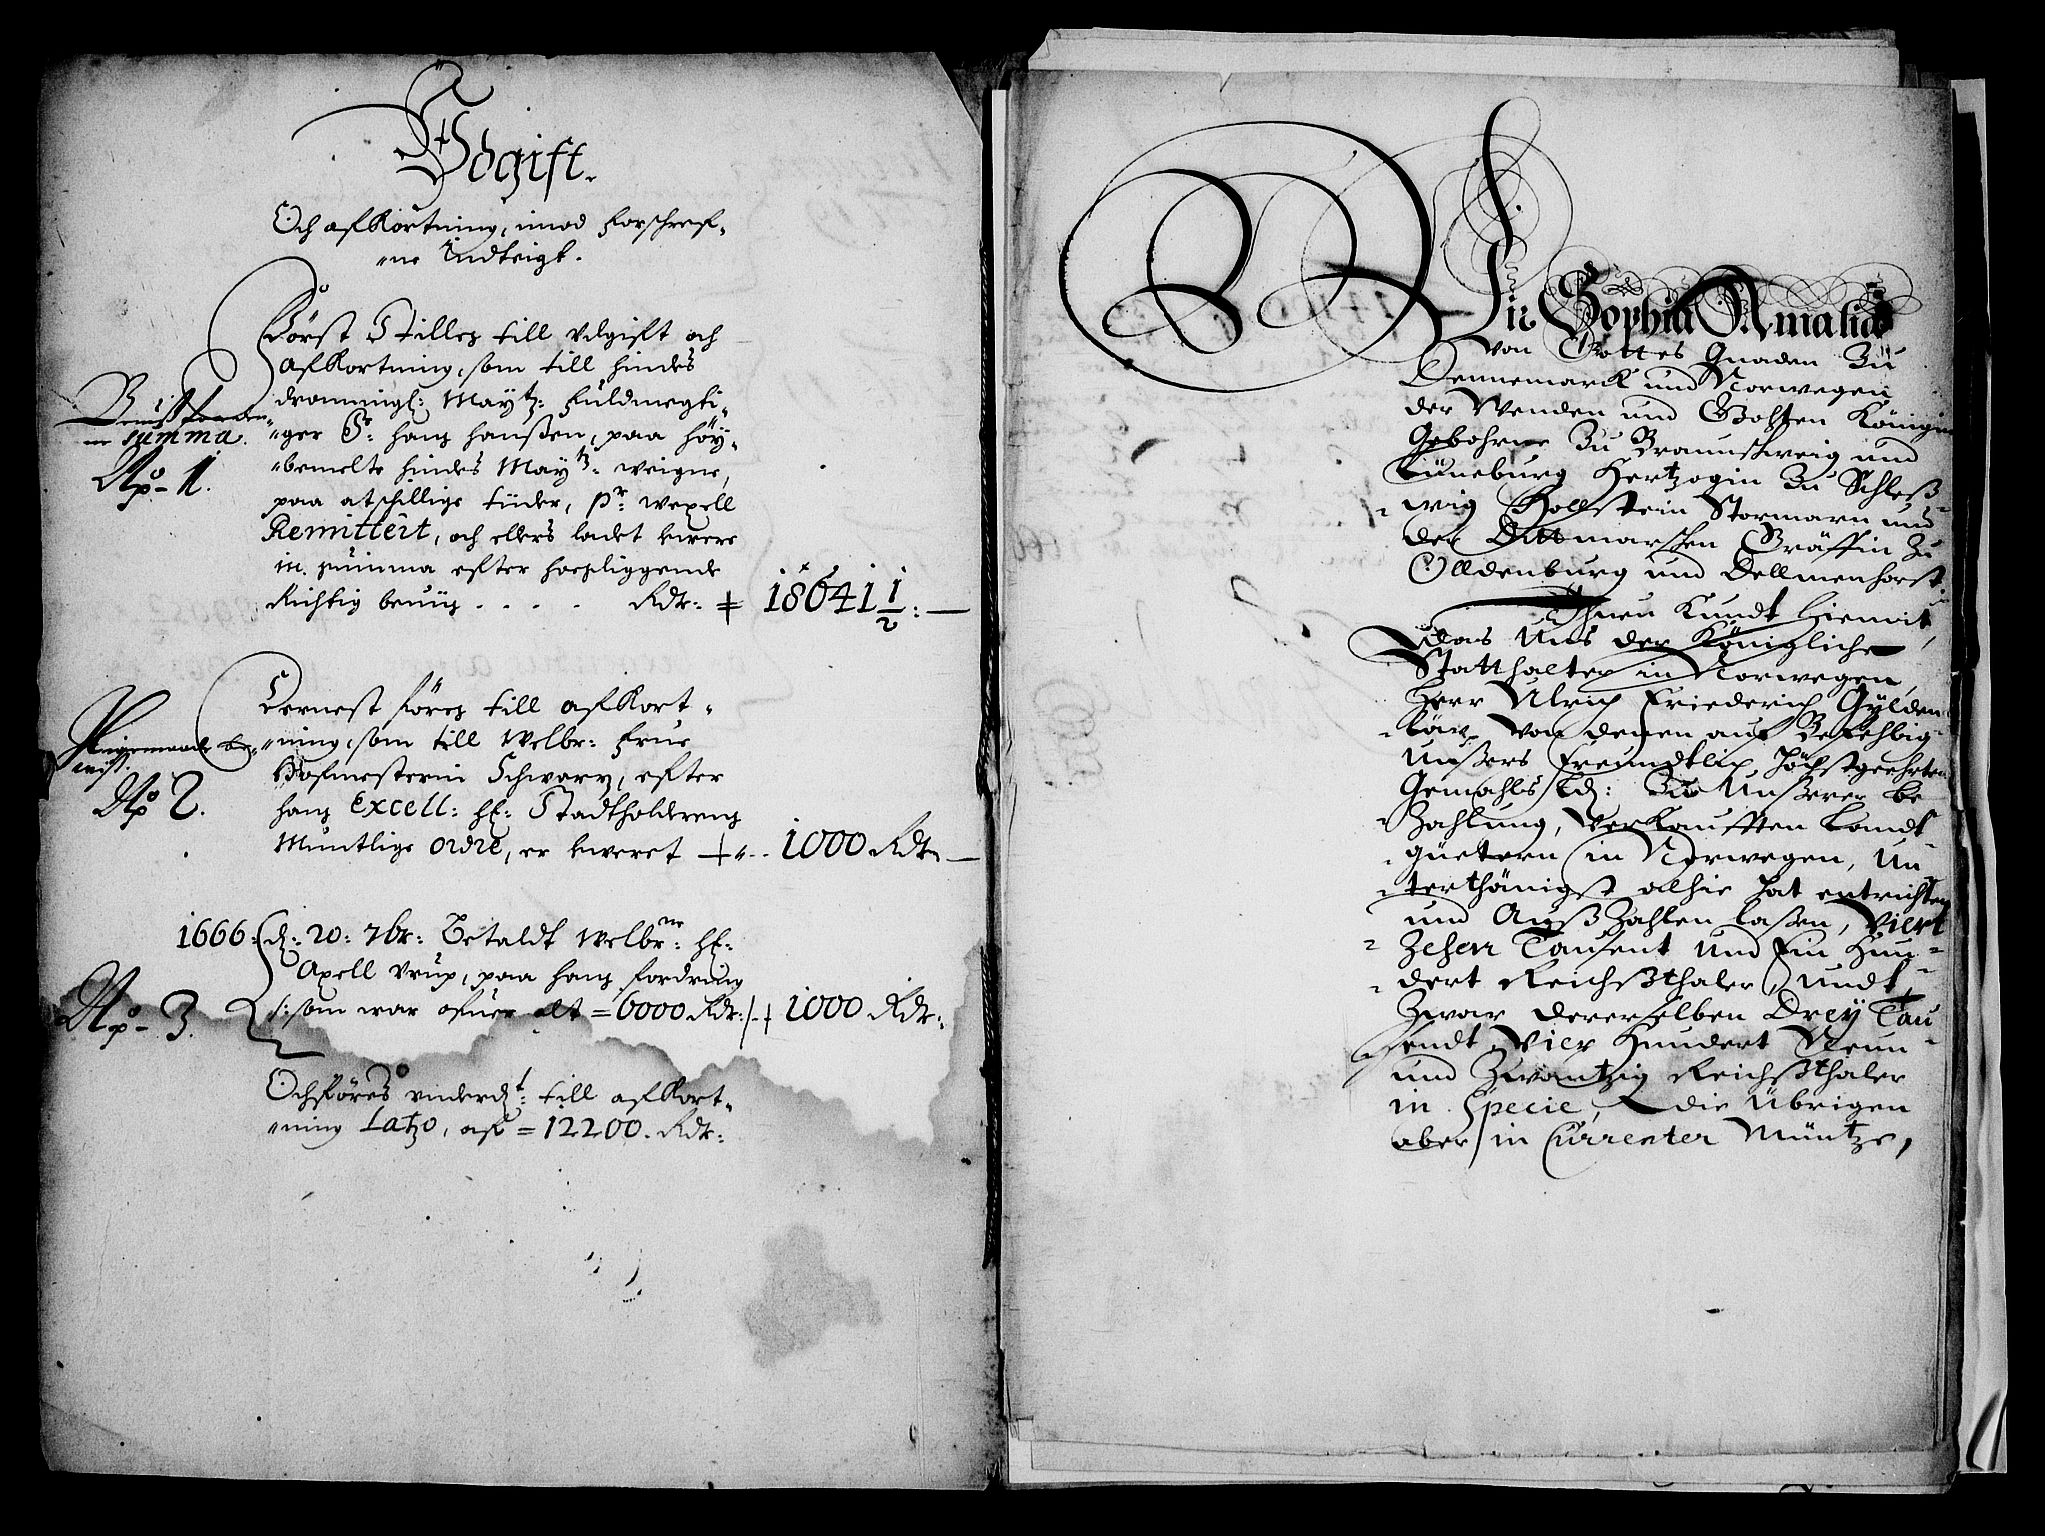 Udgift.
Och afkortning, imod forschref„
„ne Indteigt.
Først Stilles till vdgift och
afkortning, som till hindes
dronningl: Maytz: fuldmegti„
„ger Sr: hans hanßen, paa høy„
„bemelte hindes Maytz: weigne,
paa atschillige tiider, pr: wexell
Remittert, och ellers ladet levere
in summa efter hosliggende
Richtig beviis . . . . Rdr: 18641 1/2 : —
summa.
No- 1.
Dernest føres till afkort„
„ning, som till Welbr: frue
Hofmesterin Schwarz, efter
hans Excell: hr: Stadtholderens
Muntlige ordre, er leveret 1000 Rdr —
No 2.
1666: d: 20: 7br: Betaldt Welbrne: hr:
Axell Vrup, paa hans fordring
/: som war ofuer alt = 6000 Rdr :/ 1000 Rdr:
No- 3.
Och føres vnderdt: till afkort„
„ning Latzo, af = 12200. Rdr:
Wir Sophia Amalia
von Gottes Gnaden Zu
Dennemarck und Norwegen
der Wenden und Gothen Königin
Gebohrne Zu Braunschweig und
Lüneburg Hertzogin Zu Schleß-
-wig Hollstein Stormarn und
der Dittmarschen Gräffin Zu
Olldenburg und Dellmenhorst
Thuen Kundt hiemit,
das Uns der Königliche
Statthalter in Norwegen,
Herr Ulrich Friederich Gylden
-löw, von denen auf Befehlig
Unßers Freundtlich höchstgeehrten
Gemahls Ld: Zu Unßerer be
-Zahlung, Verkaufften Landt
-güetern in Norwegen, Un
-terthänigst alhie hat entrichten
und AußZahlen laßen, Viert
Zehen Tausent und Ein Hun-
-dert Reichßthaler, undt
Zwar dererselben Drey Tau
-sendt Vier Hundert Neun-
und Zwantzig Reichßthaler
in Specie, die übrigen
aber in Currenter Müntze,